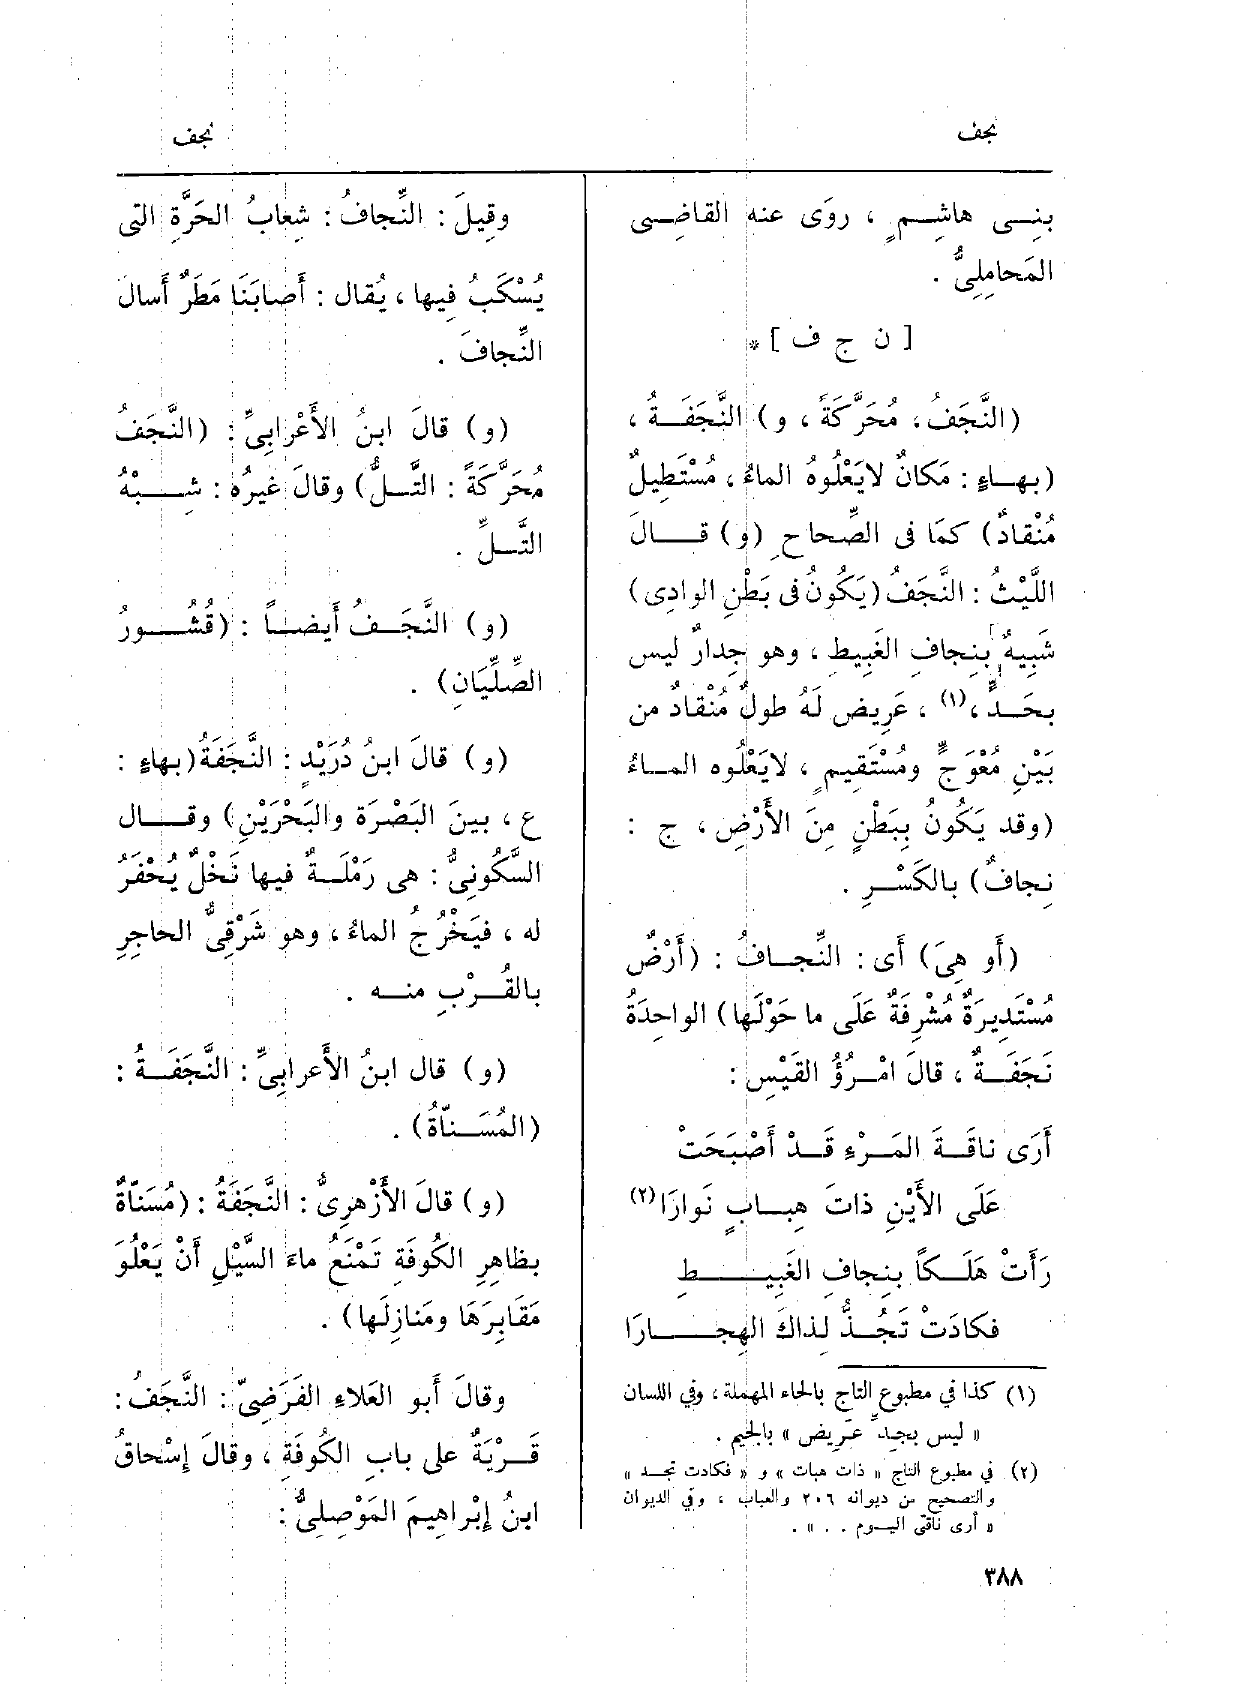 نجف
نجف
بنـى هاشـمٍ ، روَى عنه القاضِـى
المَحامِلِىُّ .
[ ن ج ف ] *
(النَّجَفُ، مُحَرَّكَةً ، و) النَّجَفَـةُ ،
(بهـاءٍ : مَكانٌ لايَعْلُوهُ الماءُ ، مُسْتَطِيلٌ
مُنْقادٌ) كمَا فى الصِّحاحِ (و) قـــالَ
اللَّيْثُ : النَّجَفُ (يَكُونُ فى بَطْنِ الوادِى)
شَبِيهٌ بنِجافِ الغَبِيطِ ، وهو جِدارٌ ليس
بحَـدٍّ ،(١) ، عَرِيض لَهُ طولٌ مُنْقادٌ من
بَيْنِ مُعْوَجٍّ ومُسْتَقِيمٍ ، لايَعْلُوه المـاءُ
(وقد يَكُونُ بِبَطْنٍ مِنَ الأَرْضِ ، ج :
نِجافٌ) بالكَسْـرِ .
(أَو هِىَ) أَى : النِّجـافُ : (أَرْضٌ
مُسْتَدِيرَةٌ مُشْرِفَةٌ عَلَى ما حَوْلَها) الواحِدَةُ
نَجَفَــةٌ ، قالَ امْـرُؤُ القَيْسِ :
أَرَى ناقَـةَ المَـرْءِ قَـدْ أَصْبَحَتْ
عَلَى الأَيْنِ ذاتَ هِبـابٍ نَوارَا(٢)
رَأَتْ هَلَـكاً بنِجافِ الغَبِيــــطِ
فكادَتْ تَجُـذُّ لذاكَ الهِجـــارَا
(١) كذا في مطبوع التاج بالحاء المهملة ، وفي اللسان
« ليس بجِدٍّ عَريض » بالجيم .
(٢) في مطبوع التاج « ذات هبات » و « فكادت تجـد »
والتصحيح من ديوانه ٢٠٦ والعباب ، وفي الديوان
« أرى ناقتى اليـوم . . » .
وقِيلَ : النِّجافُ : شِعابُ الحَرَّةِ التى
يُسْكَبُ فِيها ، يُقال : أَصابَنَا مَطَرٌ أَسالَ
النِّجافَ .
(و) قالَ ابنُ الأَعْرابِىِّ : (النَّجَفُ
مُحَرَّكَةً : التَّـلُّ) وقالَ غيرُه : شِـــبْهُ
التَّـلِّ .
(و) النَّجَـفُ أَيضـاً : (قُشُــورُ
الصِّلِّيَانِ) .
(و) قالَ ابنُ دُرَيْدٍ : النَّجَفَةُ (بهاءٍ :
ع ، بينَ البَصْرَةِ والبَحْرَيْنِ) وقــال
السَّكُونِىُّ : هى رَمْلَــةٌ فيها نَخْلٌ يُحْفَرُ
له ، فيَخْرُجُ الماءُ ، وهو شَرْقِىُّ الحاجِرِ
بالقُـرْبِ منـه .
(و) قال ابنُ الأَعرابِىِّ : النَّجَفَـةُ :
(المُسَـنّاةُ) .
(و) قالَ الأَزْهرِىُّ : النَّجَفَةُ : (مُسَنّاةٌ
بظاهِرِ الكُوفَةِ تَمْنَعُ ماءَ السَّيْلِ أَنْ يَعْلُوَ
مَقابِرَهَا ومَنازِلَها) .
وقالَ أَبو العَلاءِ الفَرَضِىّ : النَّجَفُ :
قَـرْيَةٌ على بابِ الكُوفَةِ ، وقالَ إِسْحاقُ
ابنُ إِبْراهِيمَ المَوْصِلِىُّ :
٣٨٨